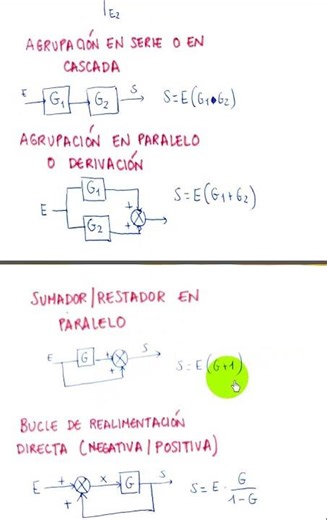 E2
AGRUPACIÓN EN SERIE O EN
CASCADA
E G1 G2 S S=E(G1•G2)
AGRUPACIÓN EN PARALELO
O DERIVACIÓN
G1
E + + S=E(G1+G2)
G2
SUMADOR/RESTADOR EN
PARALELO
E G + + S S=E(G+1)
BUCLE DE REALIMENTACIÓN
DIRECTA (NEGATIVA/POSITIVA)
E + + X G S S=E· G/1-G